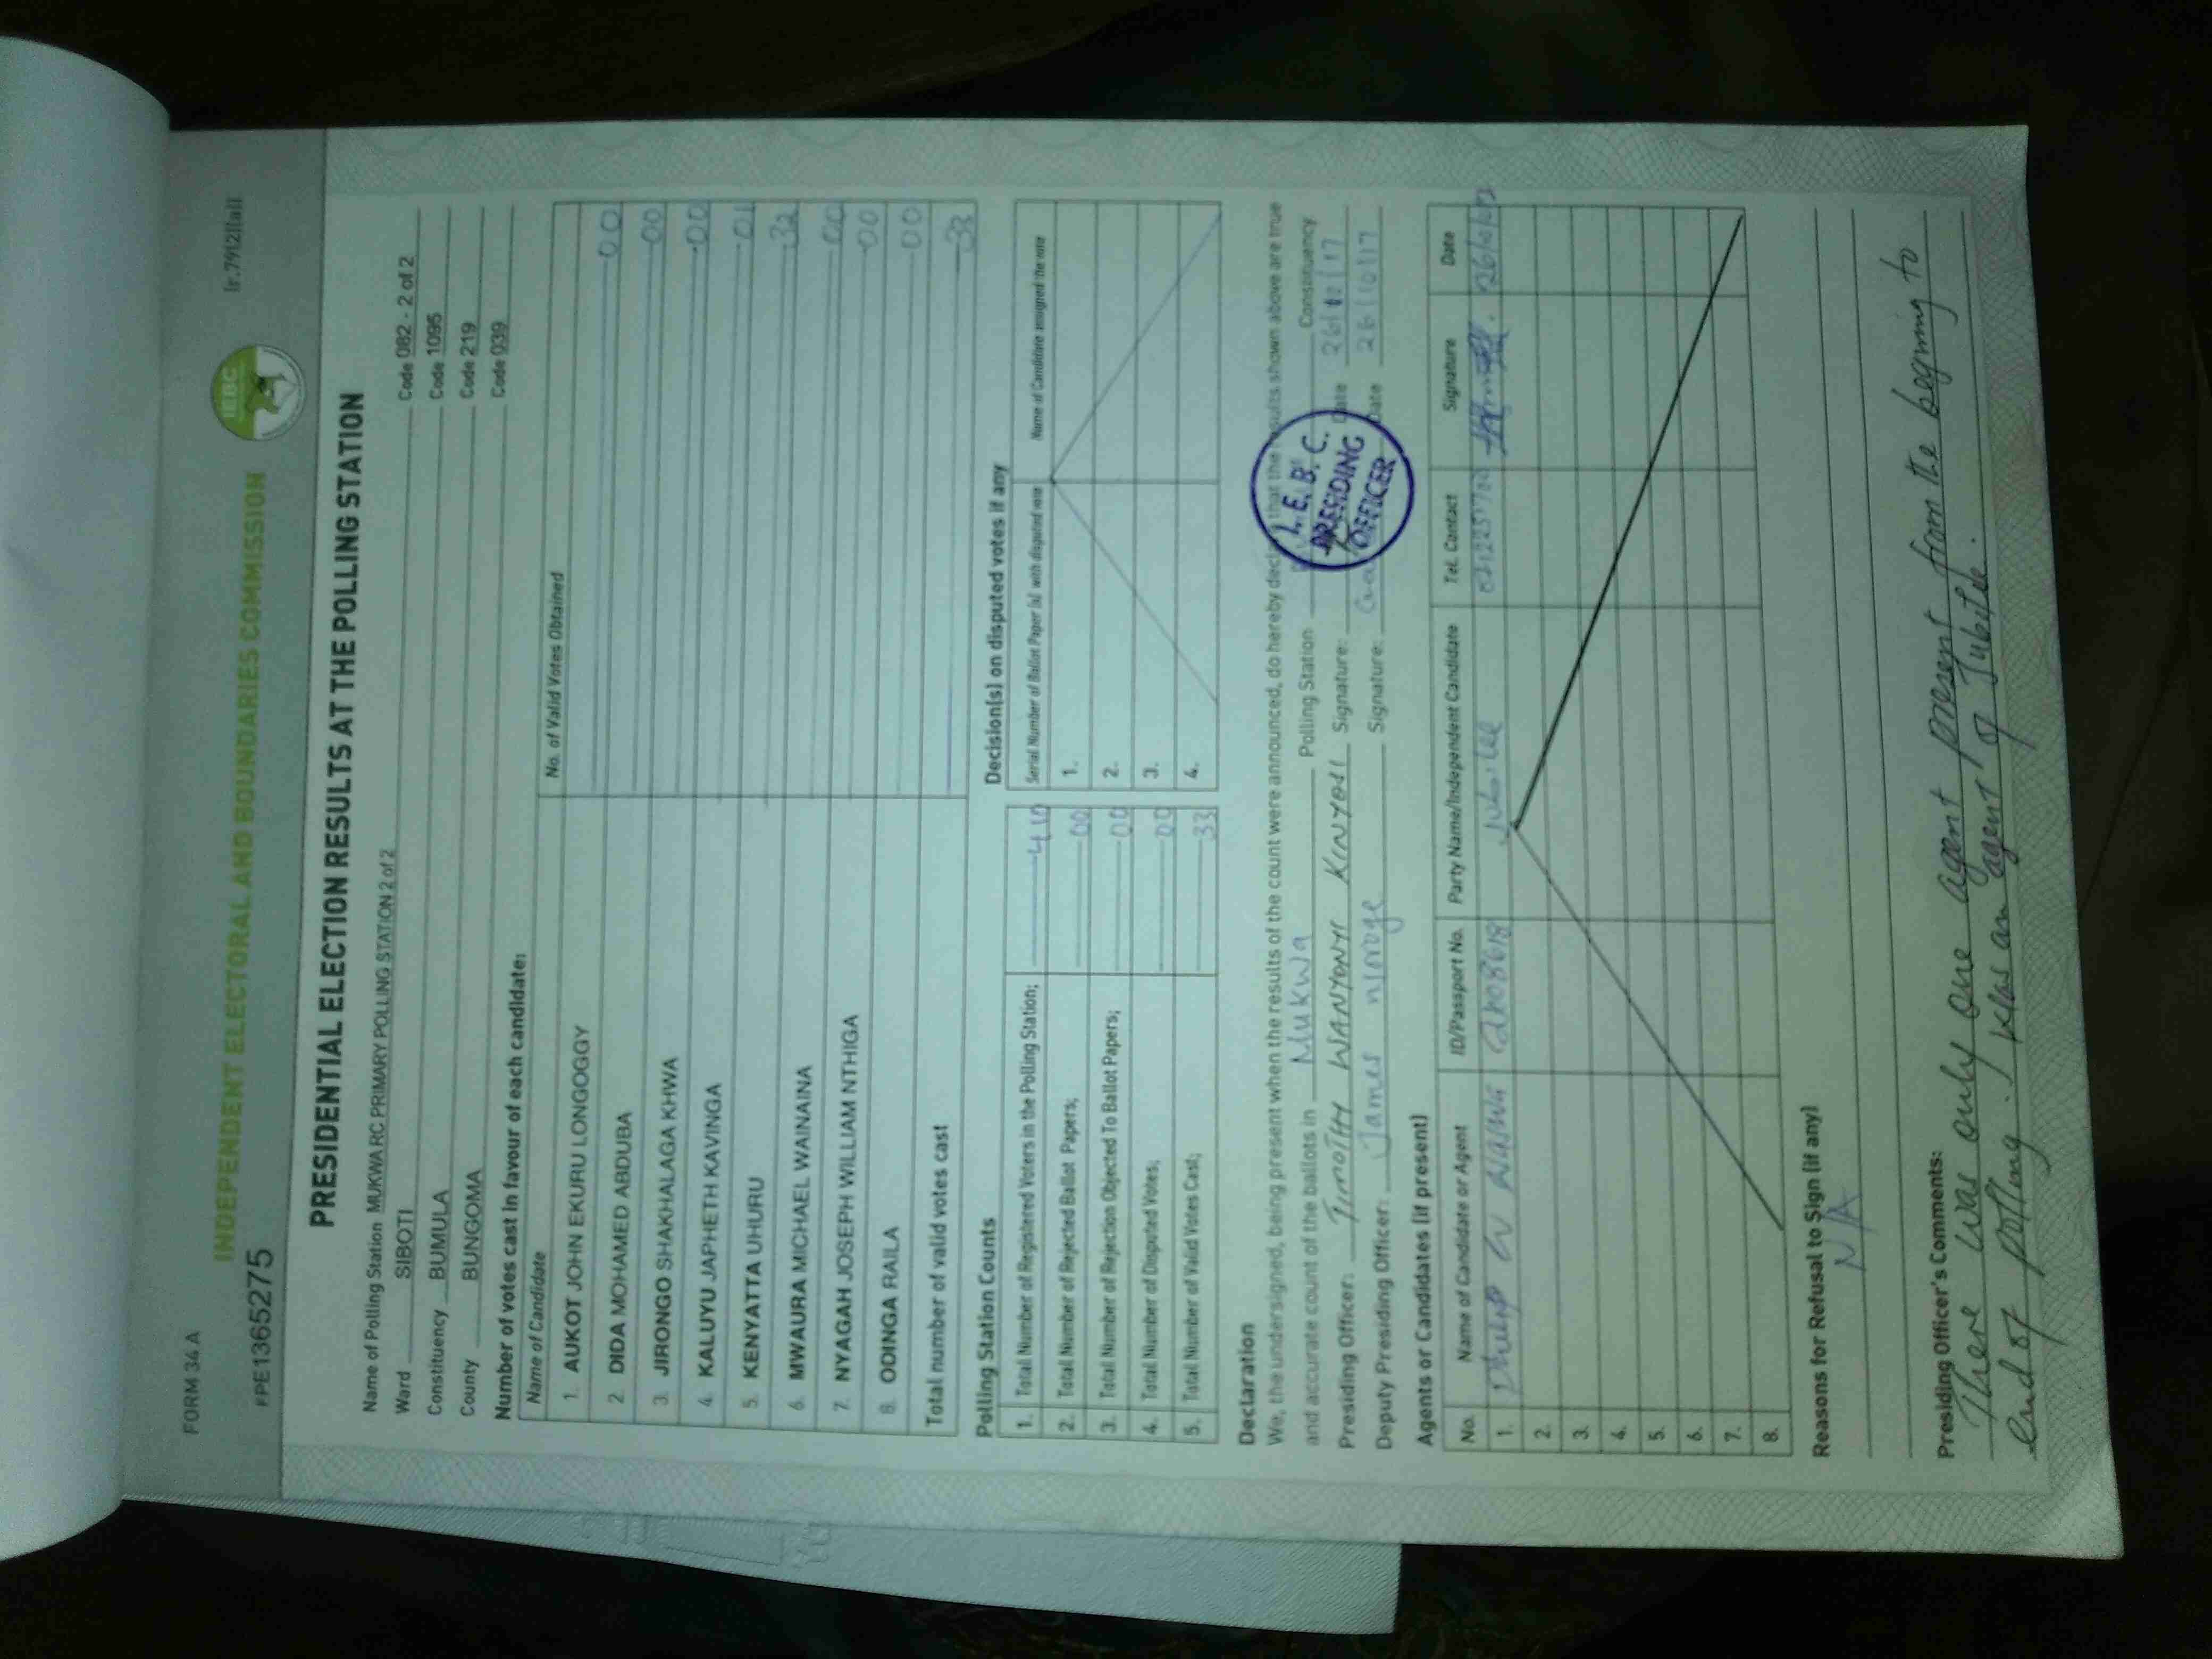 FORM 34 A
Ir.79(2)(a)]
INDEPENDENT ELECTORAL AND BOUNDARIES COMMISSION
IEBC
FPE1365275
PRESIDENTIAL ELECTION RESULTS AT THE POLLING STATION
Name of Polling Station MUKWA RC PRIMARY POLLING STATION 2 of 2 Code 082 - 2 of 2
Ward SIBOTI Code 1095
Constituency BUMULA Code 219
County BUNGOMA Code 039
Number of votes cast in favour of each candidate:
Name of Candidate No. of Valid Votes Obtained
1. AUKOT JOHN EKURU LONGOGGY 00
2. DIDA MOHAMED ABDUBA 00
3. JIRONGO SHAKHALAGA KHWA 00
4. KALUYU JAPHETH KAVINGA 01
5. KENYATTA UHURU 32
6. MWAURA MICHAEL WAINAINA 00
7. NYAGAH JOSEPH WILLIAM NTHIGA 00
8. ODINGA RAILA 00
Total number of valid votes cast 33
Polling Station Counts
1. Total Number of Registered Voters in the Polling Station; 410
2. Total Number of Rejected Ballot Papers; 00
3. Total Number of Rejection Objected To Ballot Papers; 00
4. Total Number of Disputed Votes; 00
5. Total Number of Valid Votes Cast; 33
Decision(s) on disputed votes if any
Serial Number of Ballot Paper (s) with disputed vote Name of Candidate assigned the vote
1.
2.
3.
4.
Declaration
We, the undersigned, being present when the results of the count were announced, do hereby declare that the results shown above are true
and accurate count of the ballots in Mukwa Polling Station Constituency
Presiding Officer: TIMOTHY WANYONYI KINYOSI Signature: Date 26/10/17
Deputy Presiding Officer: James Njoroge Signature: Date 26/10/17
I.E.B.C.
PRESIDING
OFFICER
Agents or Candidates (if present)
No. Name of Candidate or Agent ID/Passport No. Party Name/Independent Candidate Tel. Contact Signature Date
1. Philip W Jubilee
2.
3.
4.
5.
6.
7.
8.
Reasons for Refusal to Sign (if any)
N/A
Presiding Officer's Comments:
There was only one agent present from the begining to
end of polling. Was an agent of Jubilee.